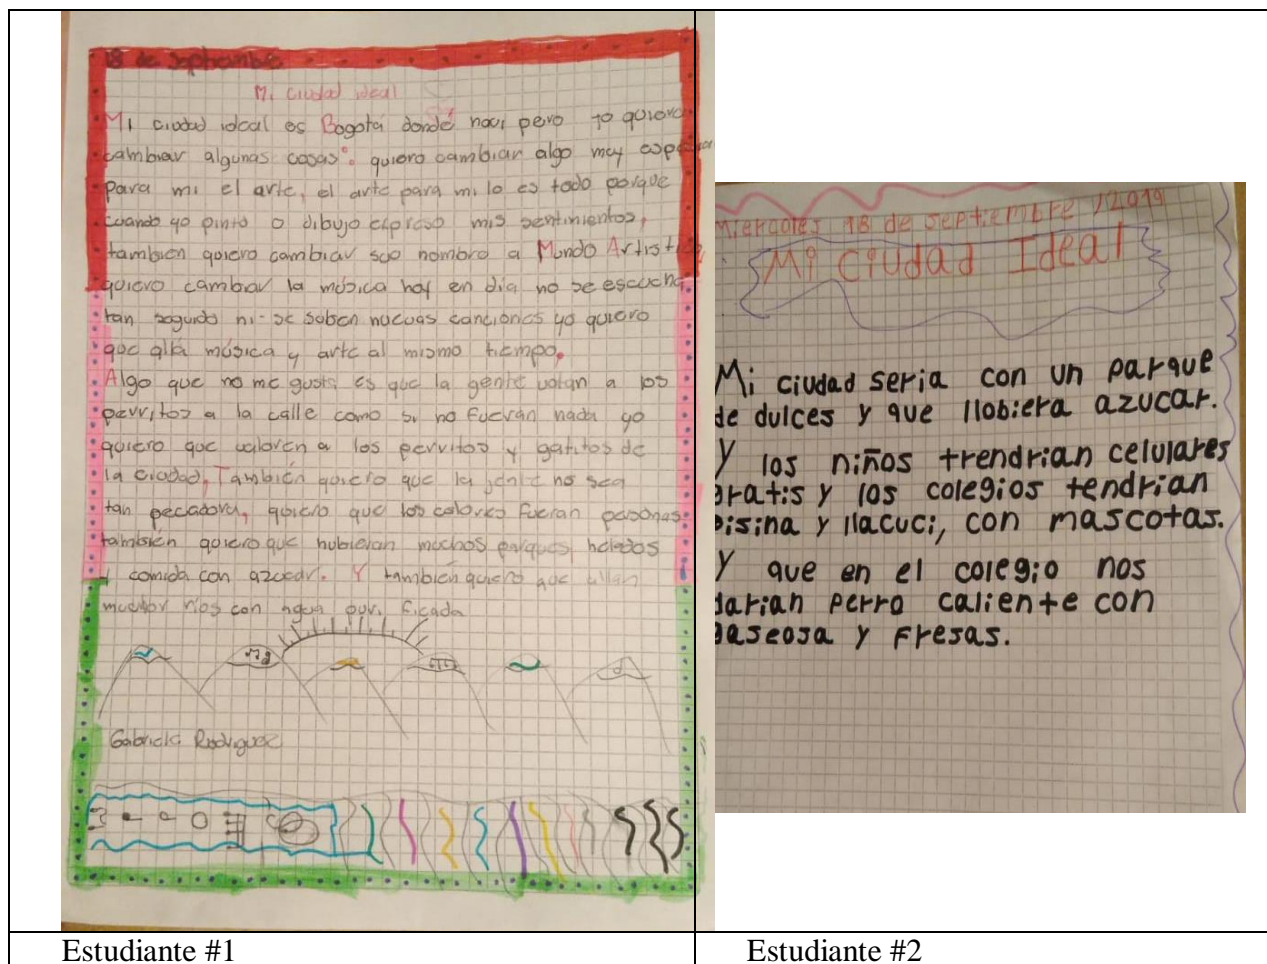 18 de Septiembre
Mi ciudad ideal
Mi ciudad ideal es Bogotá donde naci pero yo quiero
cambiar algunas cosas: quiero cambiar algo muy
para mi el arte, el arte para mi lo es todo porque
cuando yo pinto o dibujo expreso mis sentimientos,
tambien quiero cambiar suo nombre a Mundo Artistico,
quiero cambiar la música hoy en día no se escucha
tan seguido ni se saben nuevas canciones yo quiero
que alla música y arte al mismo tiempo.
Algo que no me gusta es que la gente votan a los
perritos a la calle como si no fueran nada yo
quiero que valoren a los perritos y gatitos de
la ciudad, También quiero que la jente no sea
tan pecadora, quiero que los colores fueran personas
tambien quiero que hubieran muchos parques, helados
y comida con azucar. Y también quiero que allan
rios con agua purificada
Gabriela Rodriguez
Estudiante #1
Miercoles 18 de septiembre /2019
Mi ciudad Ideal
Mi ciudad seria con un parque
de dulces y que llobiera azucar.
Y los niños trendrian celulares
gratis y los colegios tendrian
pisina y llacuci, con mascotas.
Y que en el colegio nos
darian perro caliente con
gaseosa y fresas.
Estudiante #2